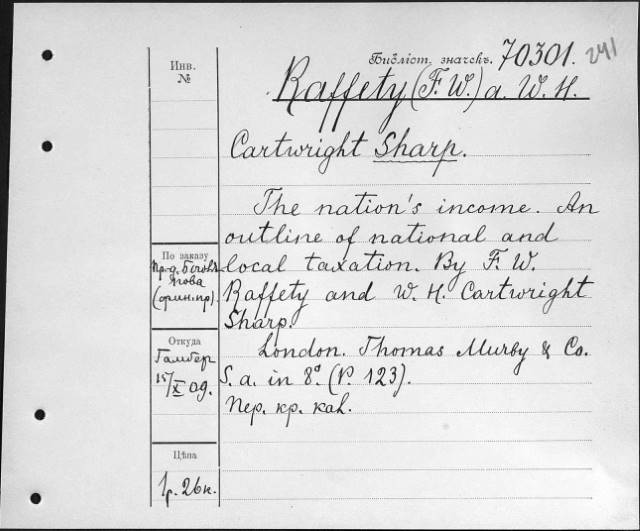 Библіот. значекъ. 70301. 241
Инв.
№
Raffety (F. W.) a. W. H.
Cartwright Sharp.
The nation's income. An
outline of national and
local taxation. By F. W.
Raffety and W. H. Cartwright
Sharp.
London. Thomas Murby & Co.
S. a. in 8º. (P. 123).
Пер. кр. кал.
По заказу
Пр-д.
Откуда
Гамбер
15/X 09.
Цѣна
1р. 26к.